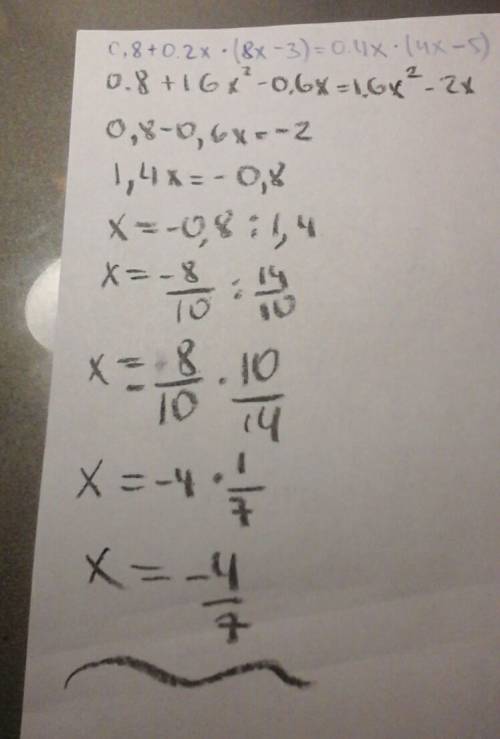 0,8+0.2x·(8x-3)=0.4x·(4x-5)
0.8+16x²-0,6x=1,6x²-2x
0,8-0,6x=-2
1,4x=-0,8
x=-0,8:1,4
x=-8/10:14/10
x=-8/10·10/14
x=-4·1/7
x=-4/7